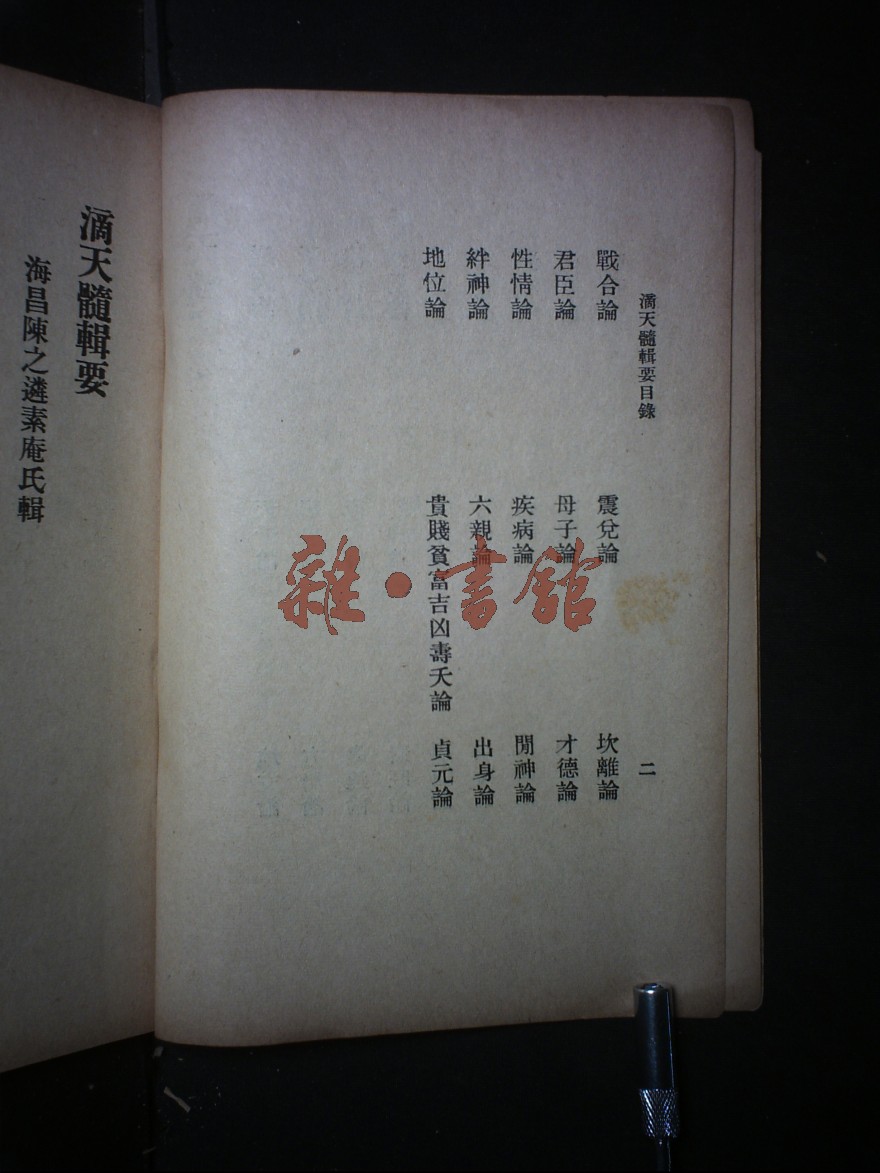 滴天髓輯要目錄 二
戰合論 震兌論 坎離論
君臣論 母子論 才德論
性情論 疾病論 閒神論
絆神論 六親論 出身論
地位論 貴賤貧富吉凶壽夭論 貞元論
滴天髓輯要
海昌陳之遴素庵氏輯
雜·書館